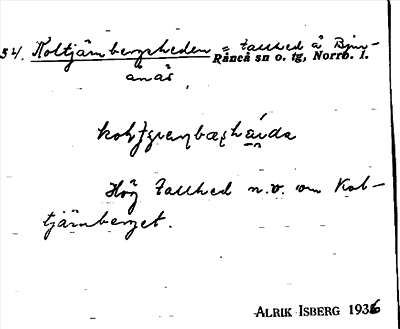 54. Koltjärnbergsheden = tallhed å Björn-
Råneå sn o. tg, Norrb. l.
anäs.
Hög tallhed n.v. om Kol-
tjärnberget.
ALRIK ISBERG 1936